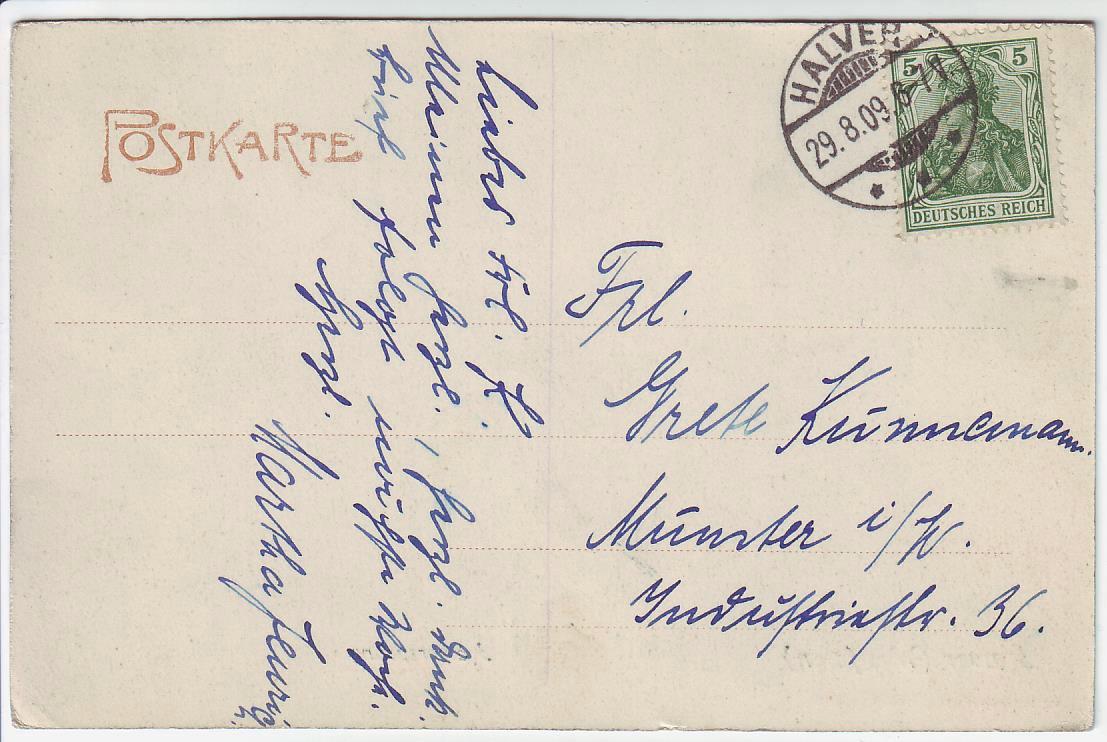 POSTKARTE
HALVER
29.8.09 6-7N
5 5
DEUTSCHES REICH
Liebes Frl. K.
Meinen herzl., herzl. Dank.
Brief folgt nächste Woche.
Herzl.
Martha
Frl.
Grete Künnemann.
Münster i/W.
Industriestr. 36.